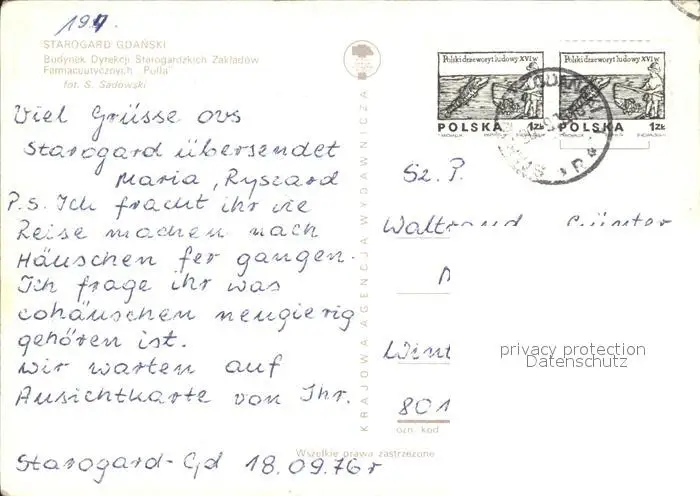 197.
STAROGARD GDAŃSKI
Budynek Dyrekcji Starogardzkich Zakładów
Farmaceutycznych "Polfa"
fot. S. Sadowski
Viel Grüsse ovs
Starogard übersendet
Maria, Ryszard
P.s. Ich fracht ihr wie
Reise machen nach
Häuschen fer gangen.
Ich frage ihr was
cohäuschen neugierig
gehören ist.
wir warten auf
Ansichtkarte von Ihr.
Starogard-Gd 18.09.76r
KRAJOWA AGENCJA WYDAWNICZA
Polski drzeworyt ludowy XVI w.
POLSKA 1ZŁ
Polski drzeworyt ludowy XVI w.
POLSKA 1ZŁ
Sz. P.
Waltraud Günter
Wint
801
ozn. kod
privacy protection
Datenschutz
Wszelkie prawa zastrzeżone